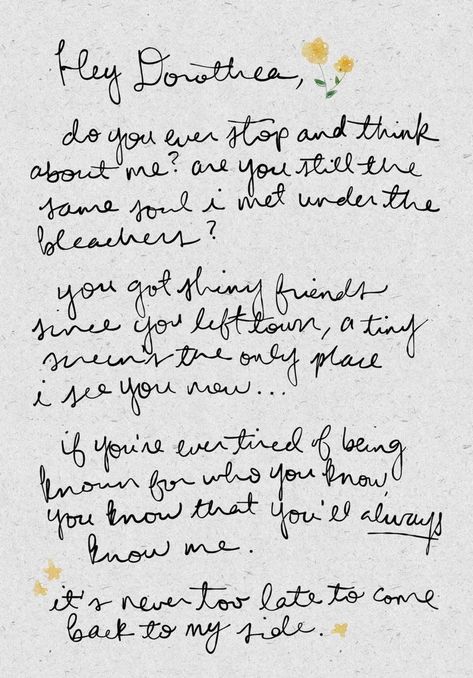 Hey Dorothea,
do you ever stop and think
about me? are you still the
same soul i met under the
bleachers?
you got shiny friends
since you left town, a tiny
screen's the only place
i see you now...
if you're ever tired of being
known for who you know
you know that you'll always
know me.
it's never too late to come
back to my side.